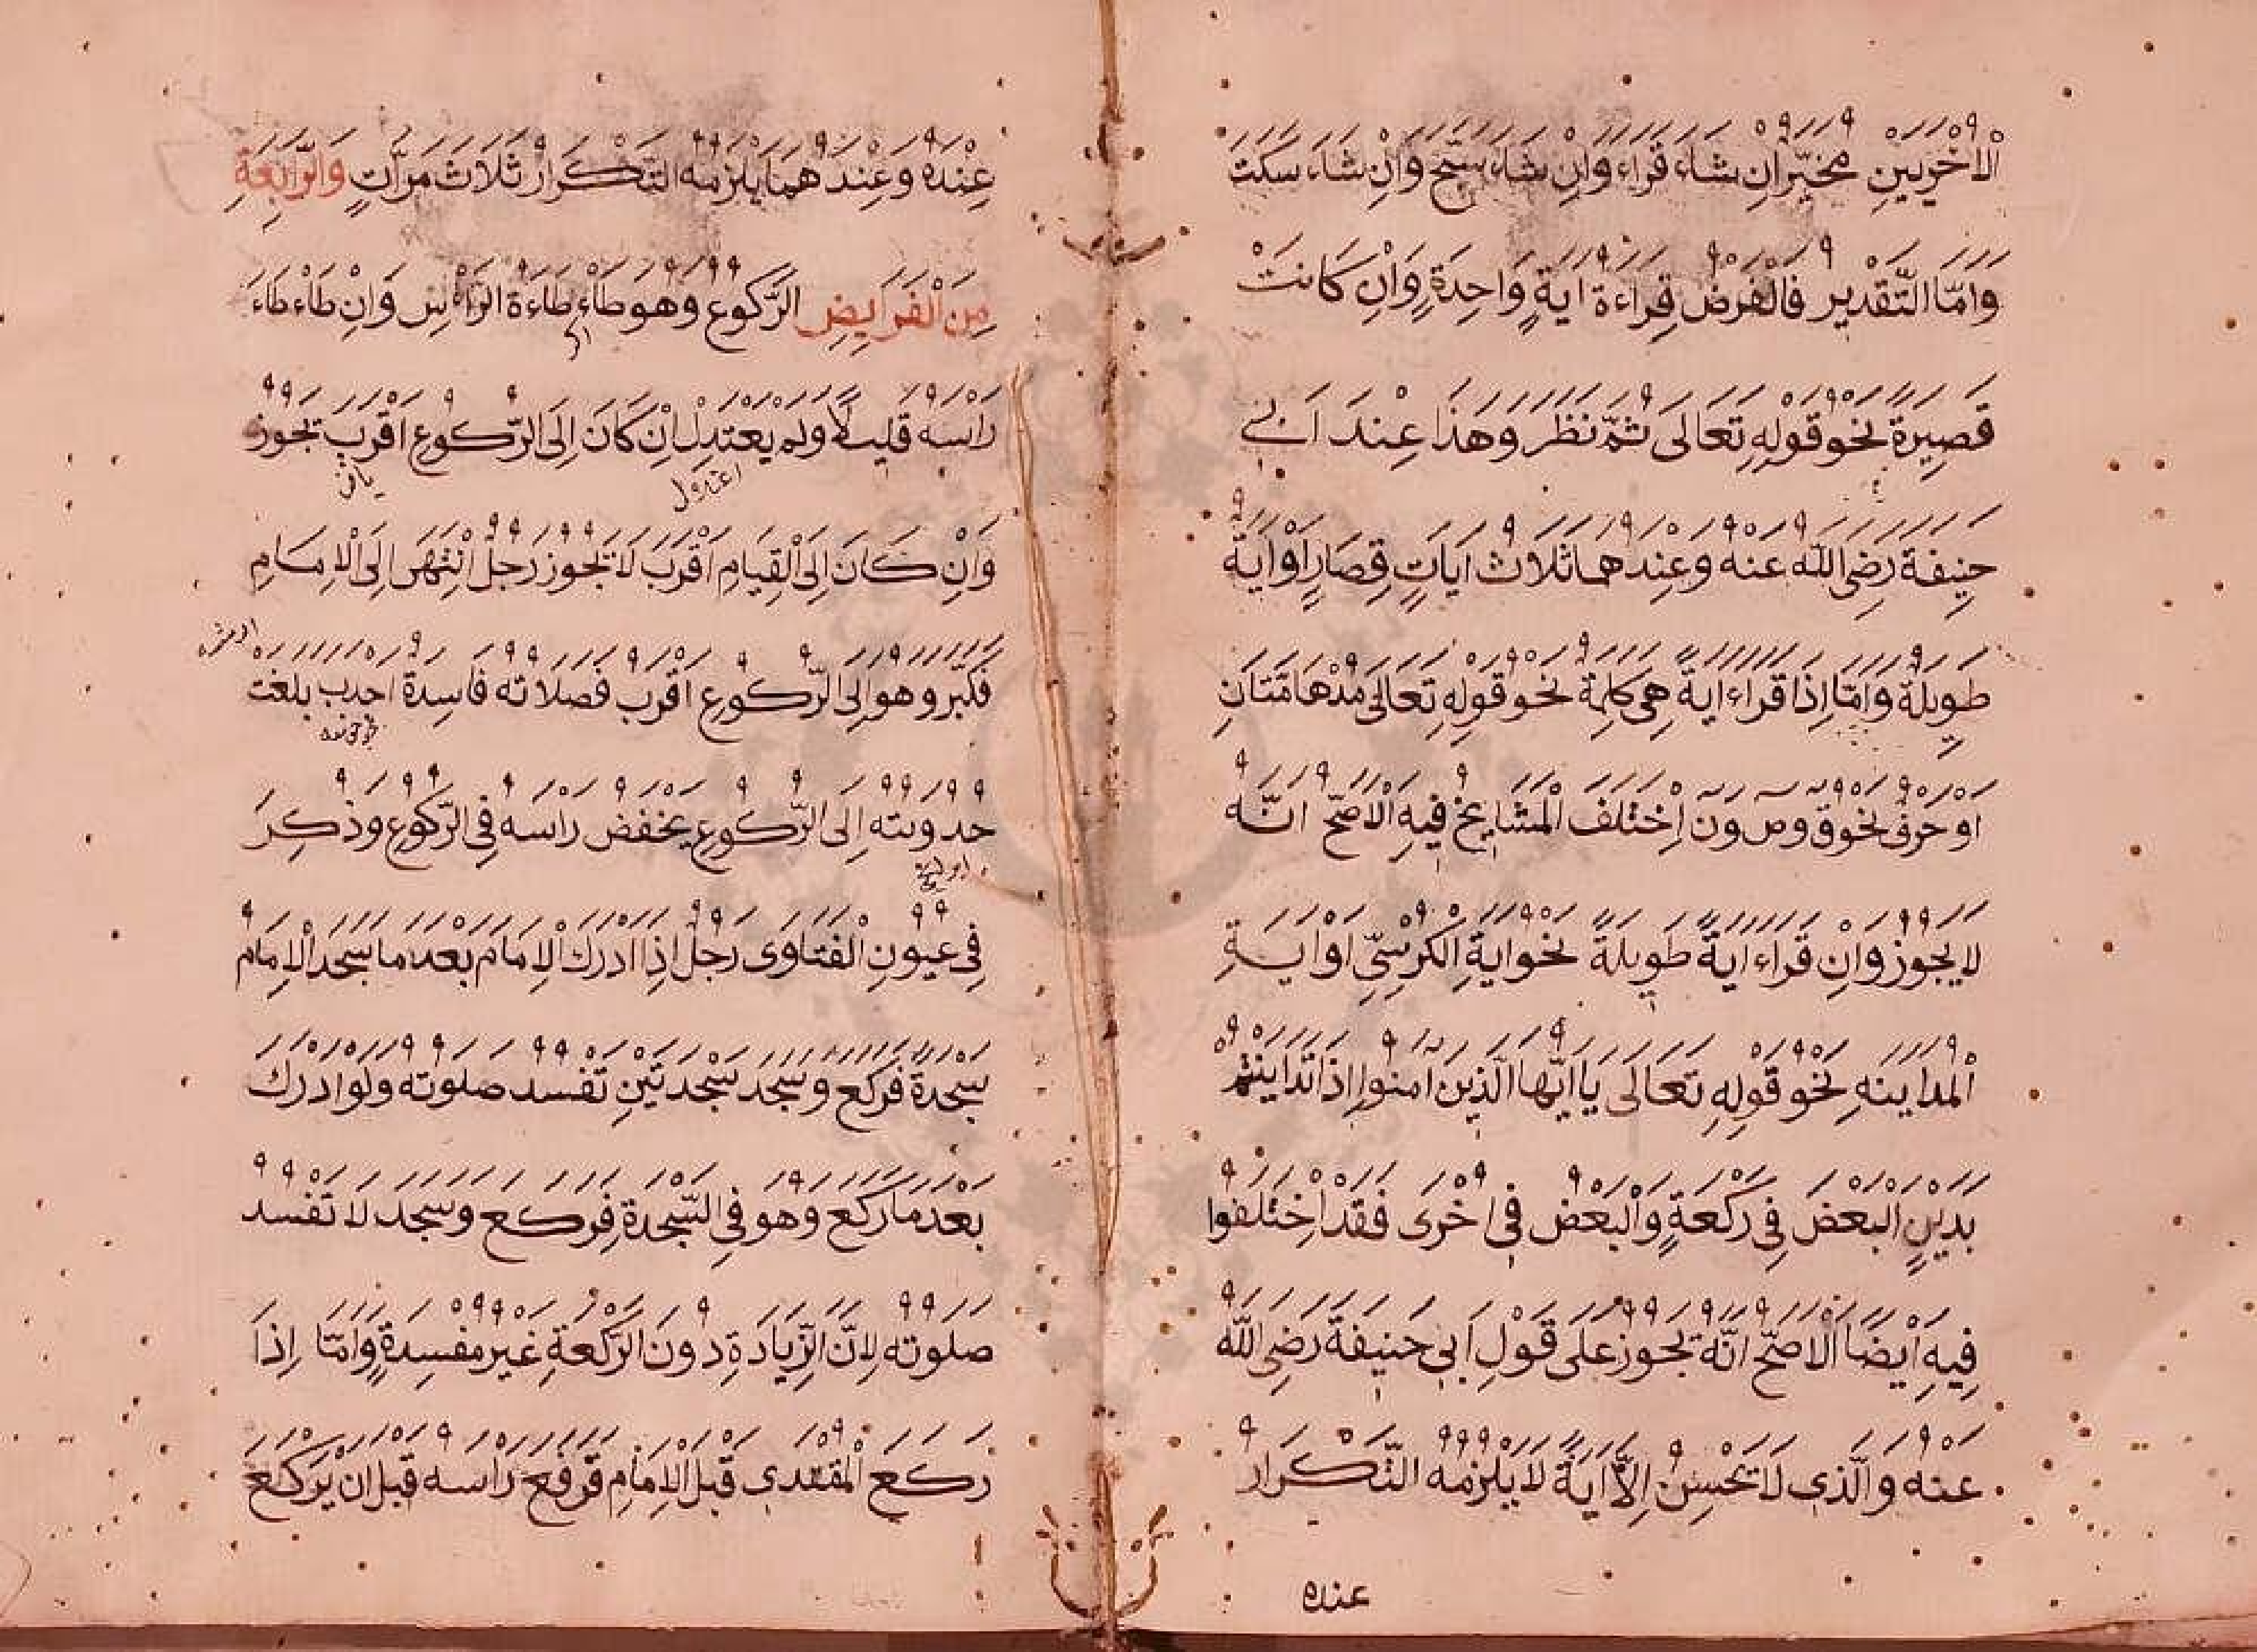 الاخريين مخيّر ان شاء قراء وان شاء سبّح وان شاء سكت
وامّا التّقدير فالفرض قراءة اية واحدة وان كانت
قصيرة نحو قوله تعالى ثمّ نظر وهذا عند ابي
حنيفة رضي الله عنه وعندهما ثلاث ايات قصار او اية
طويلة وامّا اذا قراء اية هي كلمة نحو قوله تعالى مدهامّتان
او حرف نحو ق و ص و ن اختلف المشايخ فيه الاصحّ انّه
لا يجوز وان قراء اية طويلة نحو اية الكرسيّ او اية
المداينه نحو قوله تعالى يا ايّها الّذين آمنوا اذا تداينتم
بدين البعض في ركعة والبعض في اخرى فقد اختلفوا
فيه ايضا الاصحّ انّه يجوز على قول ابي حنيفة رضي الله
عنه والّذي لا يحسن الّا اية لا يلزمه التّكرار
عنده
عنده وعندهما يلزمه التّكرار ثلاث مرّات والرّابعة
من الفرايض الرّكوع وهو طاءطاءة الرّاءس وان طاءطاء
راسه قليلا ولم يعتدل ان كان الى الرّكوع اقرب يجوز
وان كان الى القيام اقرب لا يجوز رجل انتهى الى الامام
فكبّر وهو الى الرّكوع اقرب فصلاته فاسدة احدب بلغت
حدوبته الى الرّكوع يخفض راسه في الرّكوع وذكر
في عيون الفتاوى رجل اذا ادرك الامام بعد ما سجد الامام
سجدة فركع وسجد سجدتين تفسد صلوته ولو ادرك
بعد ما ركع وهو في السّجدة فركع وسجد لا تفسد
صلوته لانّ الزّيادة دون الرّكعة غير مفسدة وامّا اذا
ركع المقتدي قبل الامام فرفع راسه قبل ان يركع